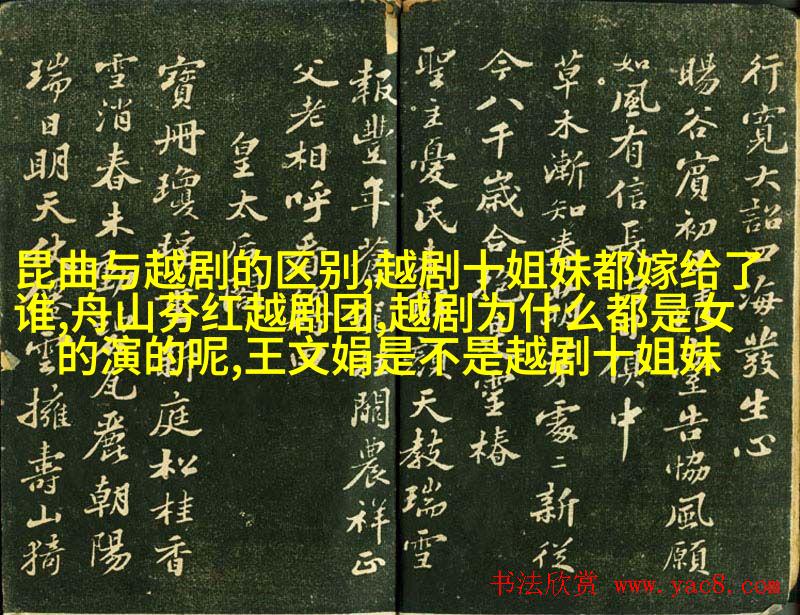 昆曲与越剧的区别,越剧十姐妹都嫁给了
谁,舟山芬红越剧团,越剧为什么都是女
的演的呢,王文娟是不是越剧十姐妹
行寬大詔四海發生心
暘谷賓初告協風願
如風有信長俱中
草木漸知春芽處〻新從
今八千歲合抱是靈椿
聖主憂民天教瑞雪
報豐年蒼龍闕農祥正
父老相呼看
皇太后
寶冊瓊瑤庭松桂香
雪消春未動瓦麗朝陽
瑞日明天仗雲擁壽山猗
书法欣赏 www.yac8.com